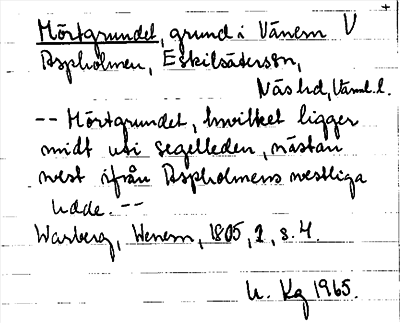 Mörtgrundet, grund i Vänern V
Aspholmen, Eskilsäterssn,
Näs hd, Värml. l.
-- Mörtgrundet, hwilket ligger
midt uti segelleden, nästan
west ifrån Aspholmens westliga
udde. --
Warberg, Wenern, 1805, 2, s. 4.
U. Kg 1965.